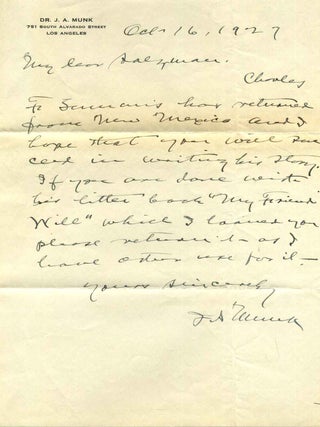 DR. J. A. MUNK
751 SOUTH ALVARADO STREET
LOS ANGELES
Oct 16, 1927
My dear Salzman.
Charles
F Lummis has returned
from New Mexico and I
hope that you will suc
ceed in writing his story.
If you are done with
his little book "My Friend
Will" which I loaned you
please return it as I
have other use for it—
Yours sincerely
J A Munk